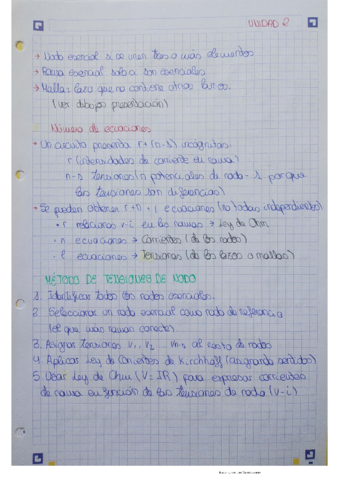 UNIDAD 2
→ Nodo esencial si se unen tres o más elementos
→ Rama esencial solo a son esenciales.
→ Malla: lazo que no contiene otros lazos.
(ver dibujos presentación)
Número de ecuaciones
• Un circuito presenta r+(n-1) incógnitas:
r (intensidades de corriente en rama)
n-1 tensiones (n potenciales de nodo - 1 porque
las tensiones son diferencias)
• Se pueden obtener r+n+l ecuaciones (no todas independientes)
• r relaciones v-i en las ramas → Ley de Ohm
• n ecuaciones → Corrientes (de los nodos)
• l ecuaciones → Tensiones (de los lazos o mallas)
MÉTODO DE TENSIONES DE NODO
1. Identificar todos los nodos esenciales.
2. Seleccionar un nodo esencial como nodo de referencia
(el que más ramas conecte)
3. Asignar tensiones v₁, v₂ ... al resto de nodos
4. Aplicar Ley de Corrientes de Kirchhoff (asignando sentidos)
5. Usar Ley de Ohm (V=IR) para expresar corrientes
de rama en función de las tensiones de nodo (v-i)